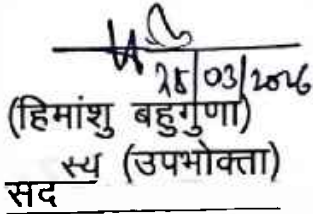 28/03/2026
(हिमांशु बहुगुणा)
स्य (उपभोक्ता)
सद